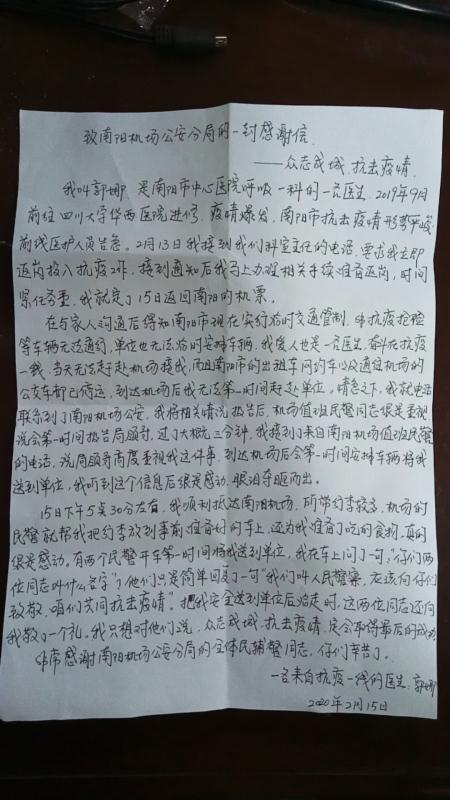 致南阳机场公安分局的一封感谢信
——众志成城,抗击疫情.
我叫郭娜 是南阳市中心医院呼吸一科的一名医生 2019年9月
前往四川大学华西医院进修,疫情爆发,南阳市抗击疫情形势严峻,
前线医护人员告急。2月13日我接到我们科室主任的电话,要求我立即
返岗投入抗疫工作,接到通知后我马上办理相关手续准备返岗,时间
紧任务重,我就定了15日返回南阳的机票。
在与家人沟通后得知南阳市现在实行临时交通管制,非抗疫抢险
等车辆无法通行,单位也无法临时安排车辆,我爱人也是一名医生,奋斗在抗疫
一线,当天无法赶赴机场接我,而且南阳市的出租车网约车以及通往机场的
公交车都已停运,到达机场后我无法第一时间赶赴单位。情急之下,我就电话
联系到了南阳机场公安,我将相关情况报告后,机场值班民警同志很是重视
说会第一时间报告局领导,过了大概三分钟,我接到了来自南阳机场值班民警
的电话,说局领导高度重视我这件事,到达机场后会第一时间安排车辆将我
送到单位,我听到这个信息后很是感动,眼泪夺眶而出。
15日下午5点30分左右,我顺利抵达南阳机场,所带行李较多,机场的
民警就帮我把行李放到事前准备好的车上,还为我准备了吃的食物,真的
很是感动。有两个民警开车第一时间将我送到单位,我在车上问了一句,“你们两
位同志叫什么名字”,他们只是简单回复了一句“我们叫人民警察,应该向你们
致敬,咱们共同抗击疫情”。把我安全送到单位后临走时,这两位同志还向
我敬了一个礼。我只想对他们说,众志成城,抗击疫情,定会取得最后的成功
非常感谢南阳机场公安分局的全体民辅警同志,你们辛苦了。
一名来自抗疫一线的医生:郭娜
2020年2月15日